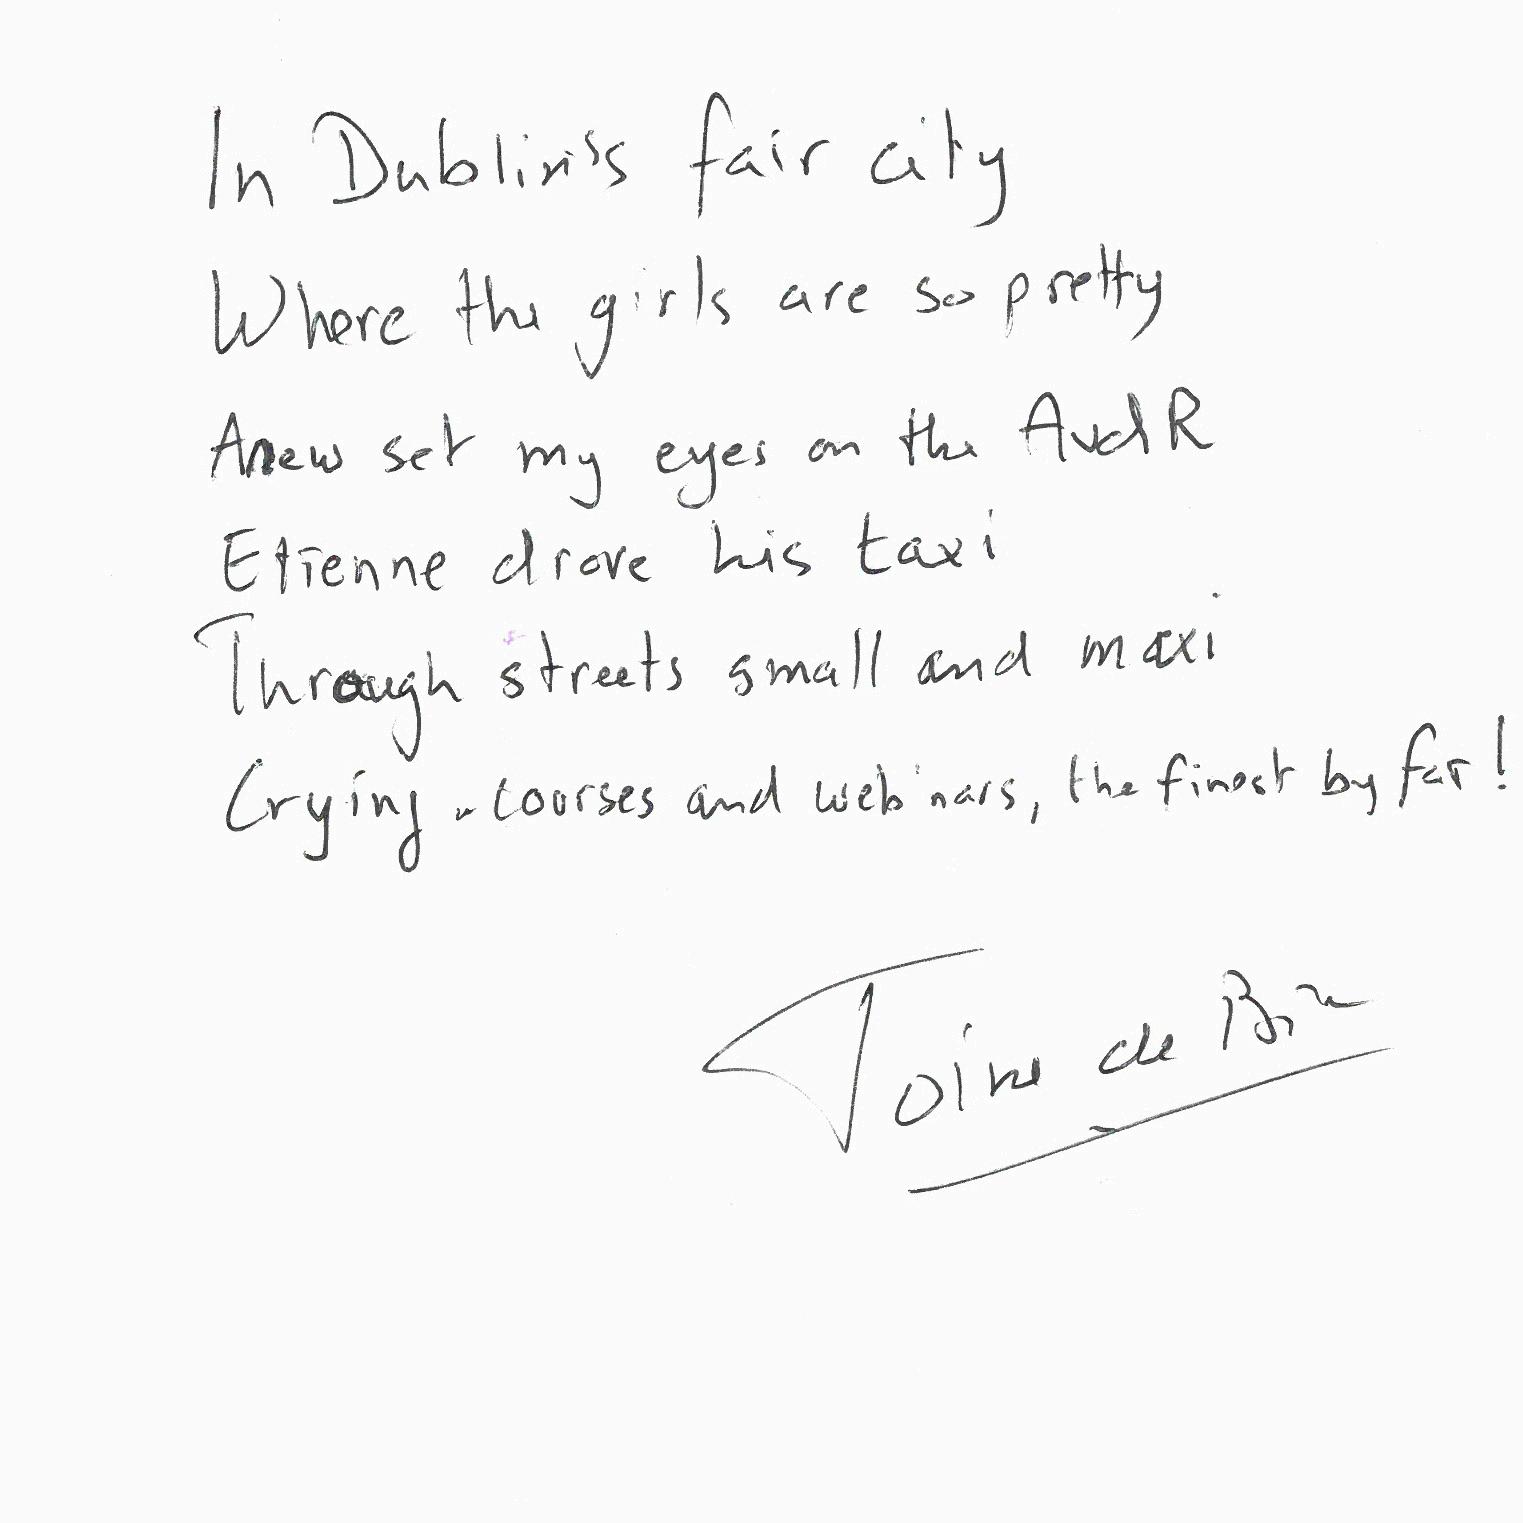 In Dublin's fair city
Where the girls are so pretty
Anew set my eyes on the AvdR
Etienne drove his taxi
Through streets small and maxi
Crying courses and webinars, the finest by far!
Toine de